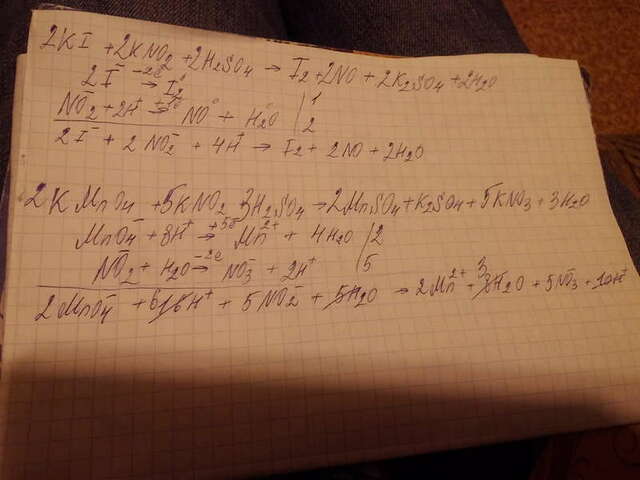 2KI + 2KNO2 + 2H2SO4 → I2 + 2NO + 2K2SO4 + 2H2O
2I⁻ -2e→ I2⁰ | 1
NO2⁻ + 2H⁺ +1e→ NO⁰ + H2O⁰ | 2
2I⁻ + 2NO2⁻ + 4H⁺ → I2 + 2NO + 2H2O
2KMnO4 + 5KNO2 3H2SO4 → 2MnSO4 + K2SO4 + 5KNO3 + 3H2O
MnO4⁻ + 8H⁺ +5e→ Mn²⁺ + 4H2O | 2
NO2⁻ + H2O -2e→ NO3⁻ + 2H⁺ | 5
2MnO4⁻ + 6 16H⁺ + 5NO2⁻ + 5H2O → 2Mn²⁺ + 3 8H2O + 5NO3⁻ + 10H⁺